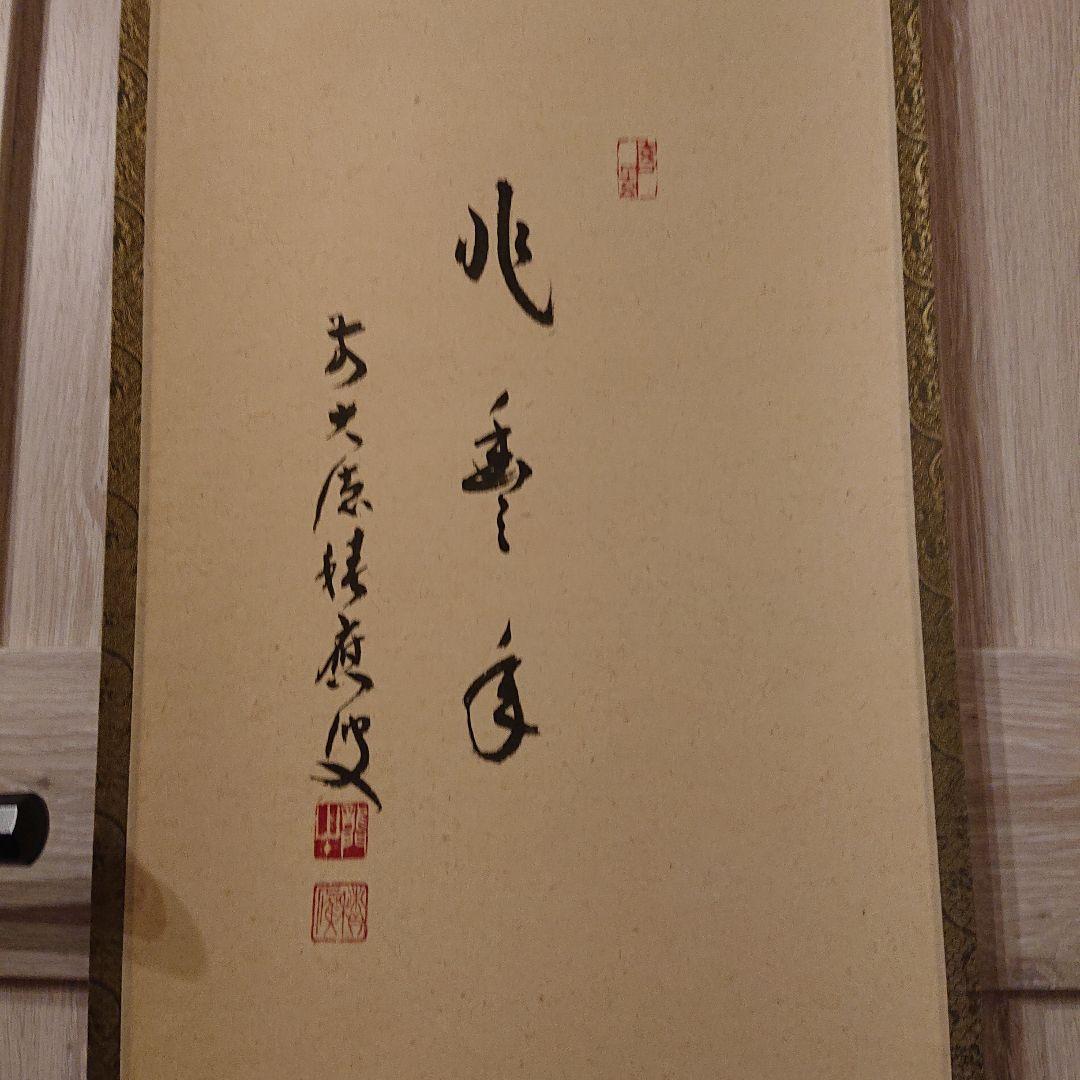 兆豊年
前大徳積應叟